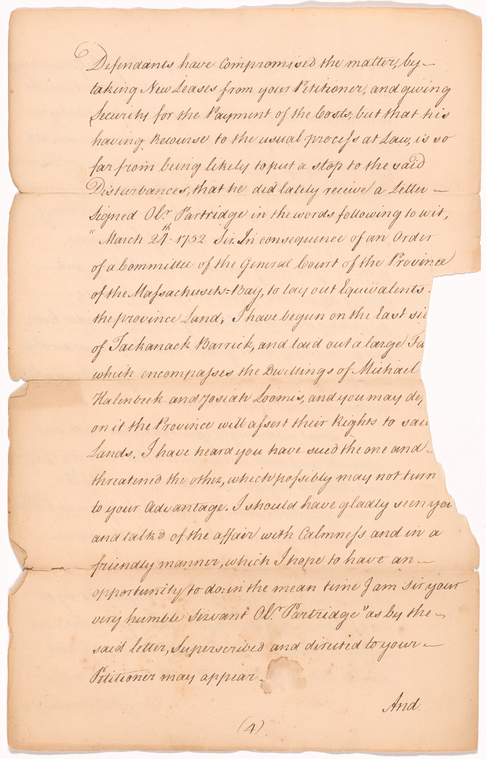 Defendants have Compromised the matter, by
taking New Leases from your Petitioner, and giving
Security for the Payment of the Costs, but that his
having Recourse to the usual process at Law, is so
far from being likely to put a stop to the said
Disturbances, that he did lately receive a Letter
Signed Olr. Partridge in the words following to wit,
"March 24th. 1752 Sir. In consequence of an Order
of a Committee of the General Court of the Province
of the Massachusets-Bay, to lay out Equivalents
the province Land, I have begun on the East si
of Tackanack Barrick, and laid out a large
which encompasses the Dwellings of Michael
Halenbeek and Josiah Loomis, and you may de
on it the Province will assert their Rights to sai
Lands. I have heard you have sued the one and
threatened the other, which possibly may not turn
to your Advantage. I should have gladly seen you
and talk'd of the affair with Calmness and in a
friendly manner, which I hope to have an
opportunity to do, in the mean time I am Sir your
very humble Servant Olr. Partridge" as by the
said letter, Superscribed and directed to your
Petitioner may appear.
And
(4)